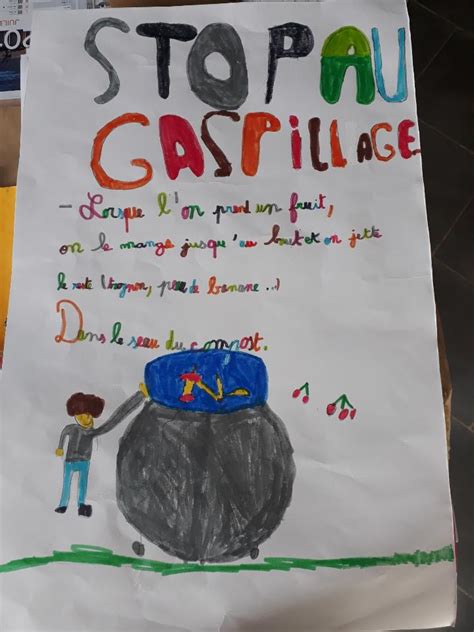 STOP AU
GASPILLAGE
- Lorsque l'on prend un fruit,
on le mange jusqu'au bout et on jette
le reste (trognon, peau de banane ...)
Dans le seau du compost.